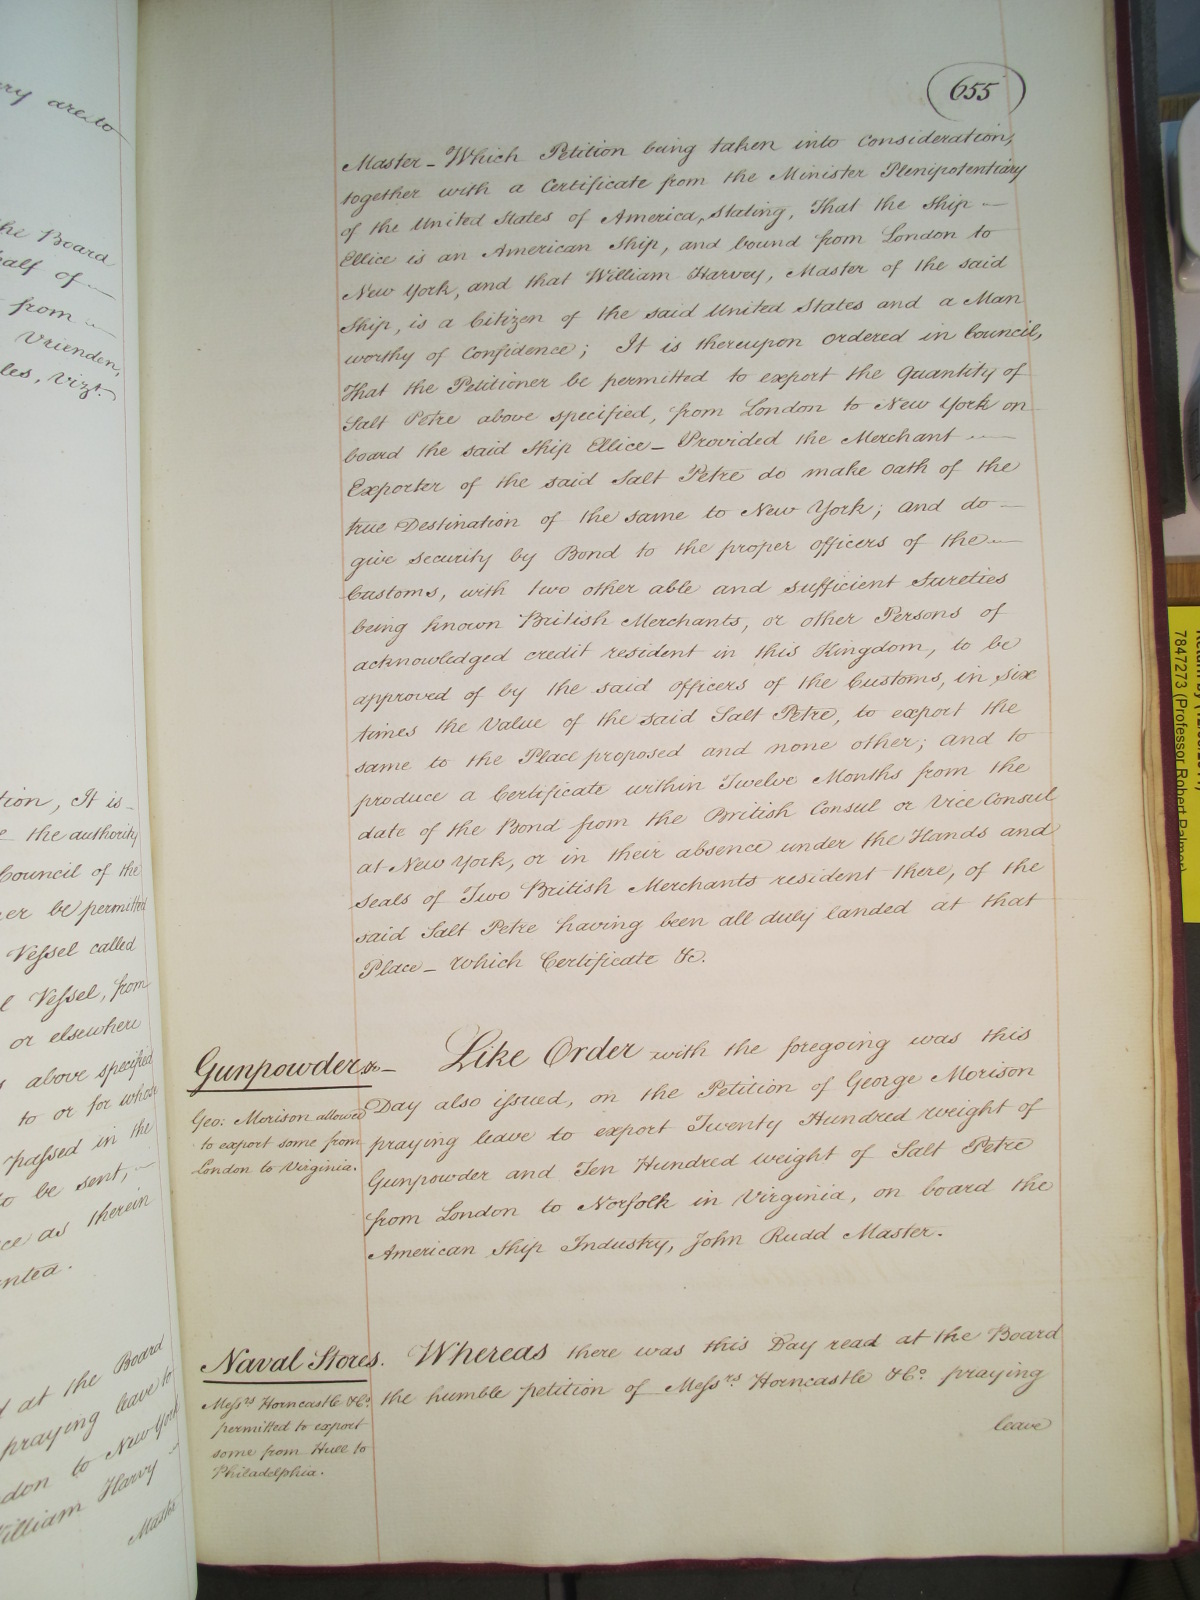 ary are to
the Board
half of
from
Vrienden,
les, vizt.
tion, It is
the authority
Council of the
er be permitted
Vessel called
l Vessel, from
or elsewhere
s above specified
to or for whose
passed in the
to be sent,
ce as therein
anted.
d at the Board
praying leave to
ndon to New York
William Harvy
Master
655
Master – Which Petition being taken into Consideration,
together with a Certificate from the Minister Plenipotentiary
of the United States of America, stating, That the Ship
Ellice is an American Ship, and bound from London to
New York, and that William Harvey, Master of the said
Ship, is a Citizen of the said United States and a Man
worthy of Confidence; It is thereupon ordered in Council,
That the Petitioner be permitted to export the Quantity of
Salt Petre above specified, from London to New York on
board the said Ship Ellice – Provided the Merchant
Exporter of the said Salt Petre do make Oath of the
true Destination of the same to New York; and do
give security by Bond to the proper Officers of the
Customs, with two other able and sufficient Sureties
being known British Merchants, or other Persons of
acknowledged credit resident in this Kingdom, to be
approved of by the said Officers of the Customs, in six
times the Value of the said Salt Petre, to export the
same to the Place proposed and none other; and to
produce a Certificate within Twelve Months from the
date of the Bond from the British Consul or Vice Consul
at New York, or in their absence under the Hands and
seals of Two British Merchants resident there, of the
said Salt Petre having been all duly landed at that
Place – Which Certificate &c.
Gunpowder &c – Like Order with the foregoing was this
Day also issued, on the Petition of George Morison
praying leave to export Twenty Hundred weight of
Gunpowder and Ten Hundred weight of Salt Petre
from London to Norfolk in Virginia, on board the
American Ship Industry, John Rudd Master.
Geo: Morison allowed
to export some from
London to Virginia.
Naval Stores. Whereas there was this Day read at the Board
the humble petition of Messrs Horncastle & Co. praying
leave
Messrs Horncastle & Co.
permitted to export
some from Hull to
Philadelphia.
7847273 (Professor Robert Palmer)